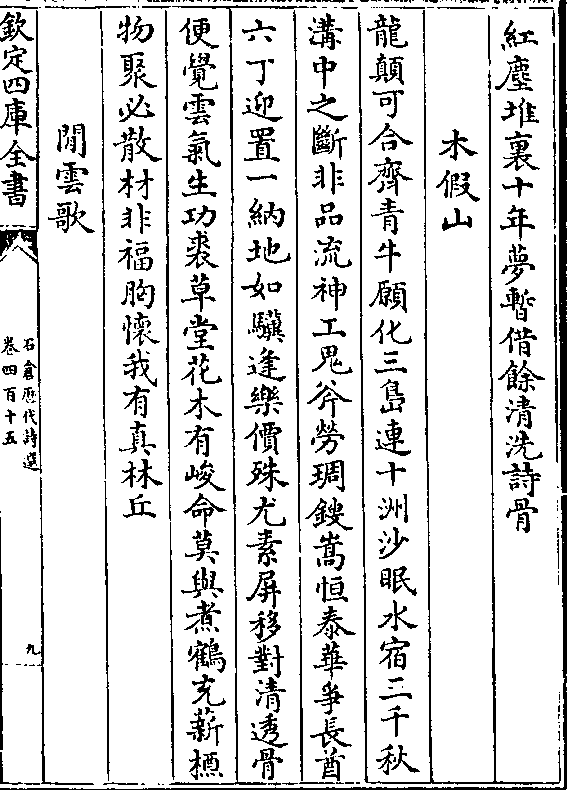 紅塵堆裏十年夢暫借餘清洗詩骨
木假山
龍顛可合齊青牛願化三島連十洲沙眠水宿二千秋
溝中之斷非品流神工鬼斧勞琱鎪嵩恒泰華爭長酋
六丁迎置一納地如驥逢樂價殊尤素屏移對清透骨
便覺雲氣生功裘草堂花木有峻命莫與煮鶴充薪槱
物聚必散材非福胸懷我有真林丘
閒雲歌
欽定四庫全書
石倉歷代詩選
卷四百十五
九